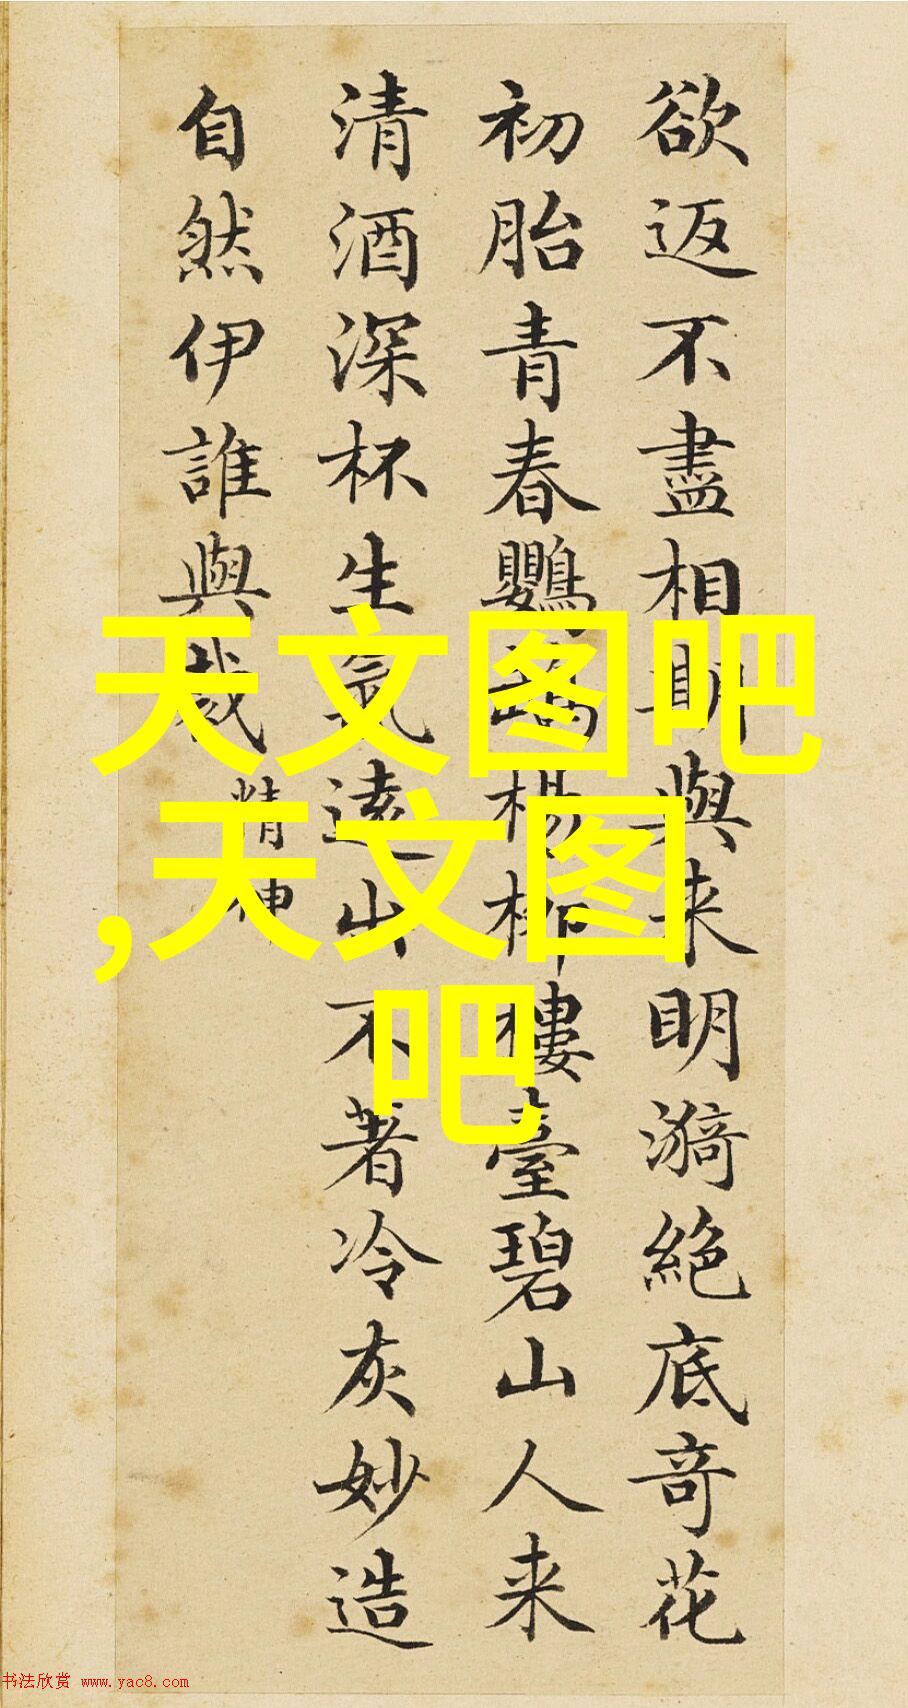 欲返不盡相期與来明漪絕底奇花
初胎青春鸚鵡楊柳樓臺碧山人来
清酒深杯生氣遠出不著冷灰妙造
自然伊誰與裁
精神
天文图吧
,天文图
吧
书法欣赏 www.yac8.com